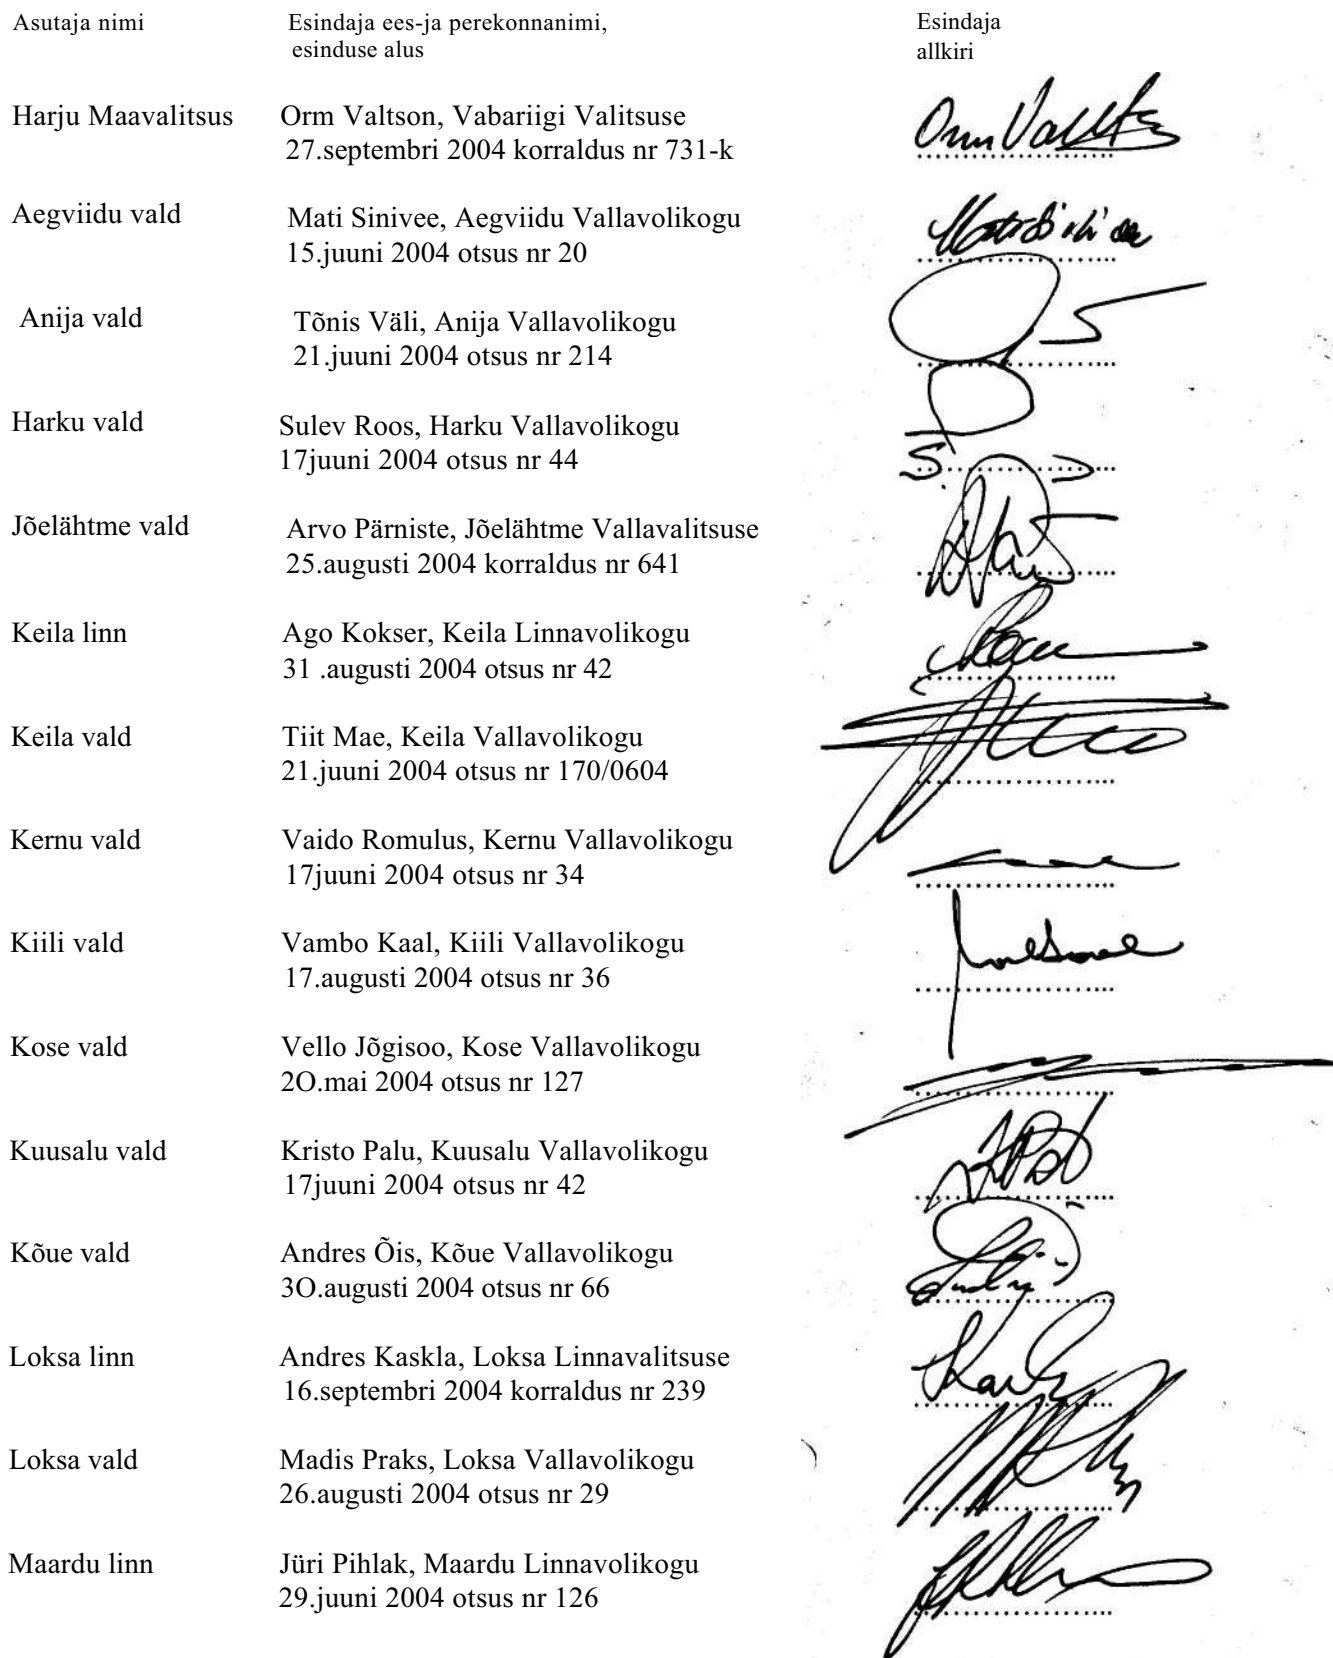 Asutaja nimi
Esindaja ees-ja perekonnanimi,
esinduse alus
Esindaja
allkiri
Harju Maavalitsus
Orm Valtson, Vabariigi Valitsuse
27.septembri 2004 korraldus nr 731-k
Aegviidu vald
Mati Sinivee, Aegviidu Vallavolikogu
15.juuni 2004 otsus nr 20
Anija vald
Tõnis Väli, Anija Vallavolikogu
21.juuni 2004 otsus nr 214
Harku vald
Sulev Roos, Harku Vallavolikogu
17juuni 2004 otsus nr 44
Jõelähtme vald
Arvo Pärniste, Jõelähtme Vallavalitsuse
25.augusti 2004 korraldus nr 641
Keila linn
Ago Kokser, Keila Linnavolikogu
31 .augusti 2004 otsus nr 42
Keila vald
Tiit Mae, Keila Vallavolikogu
21.juuni 2004 otsus nr 170/0604
Kernu vald
Vaido Romulus, Kernu Vallavolikogu
17juuni 2004 otsus nr 34
Kiili vald
Vambo Kaal, Kiili Vallavolikogu
17.augusti 2004 otsus nr 36
Kose vald
Vello Jõgisoo, Kose Vallavolikogu
2O.mai 2004 otsus nr 127
Kuusalu vald
Kristo Palu, Kuusalu Vallavolikogu
17juuni 2004 otsus nr 42
Kõue vald
Andres Õis, Kõue Vallavolikogu
3O.augusti 2004 otsus nr 66
Loksa linn
Andres Kaskla, Loksa Linnavalitsuse
16.septembri 2004 korraldus nr 239
Loksa vald
Madis Praks, Loksa Vallavolikogu
26.augusti 2004 otsus nr 29
Maardu linn
Jüri Pihlak, Maardu Linnavolikogu
29.juuni 2004 otsus nr 126